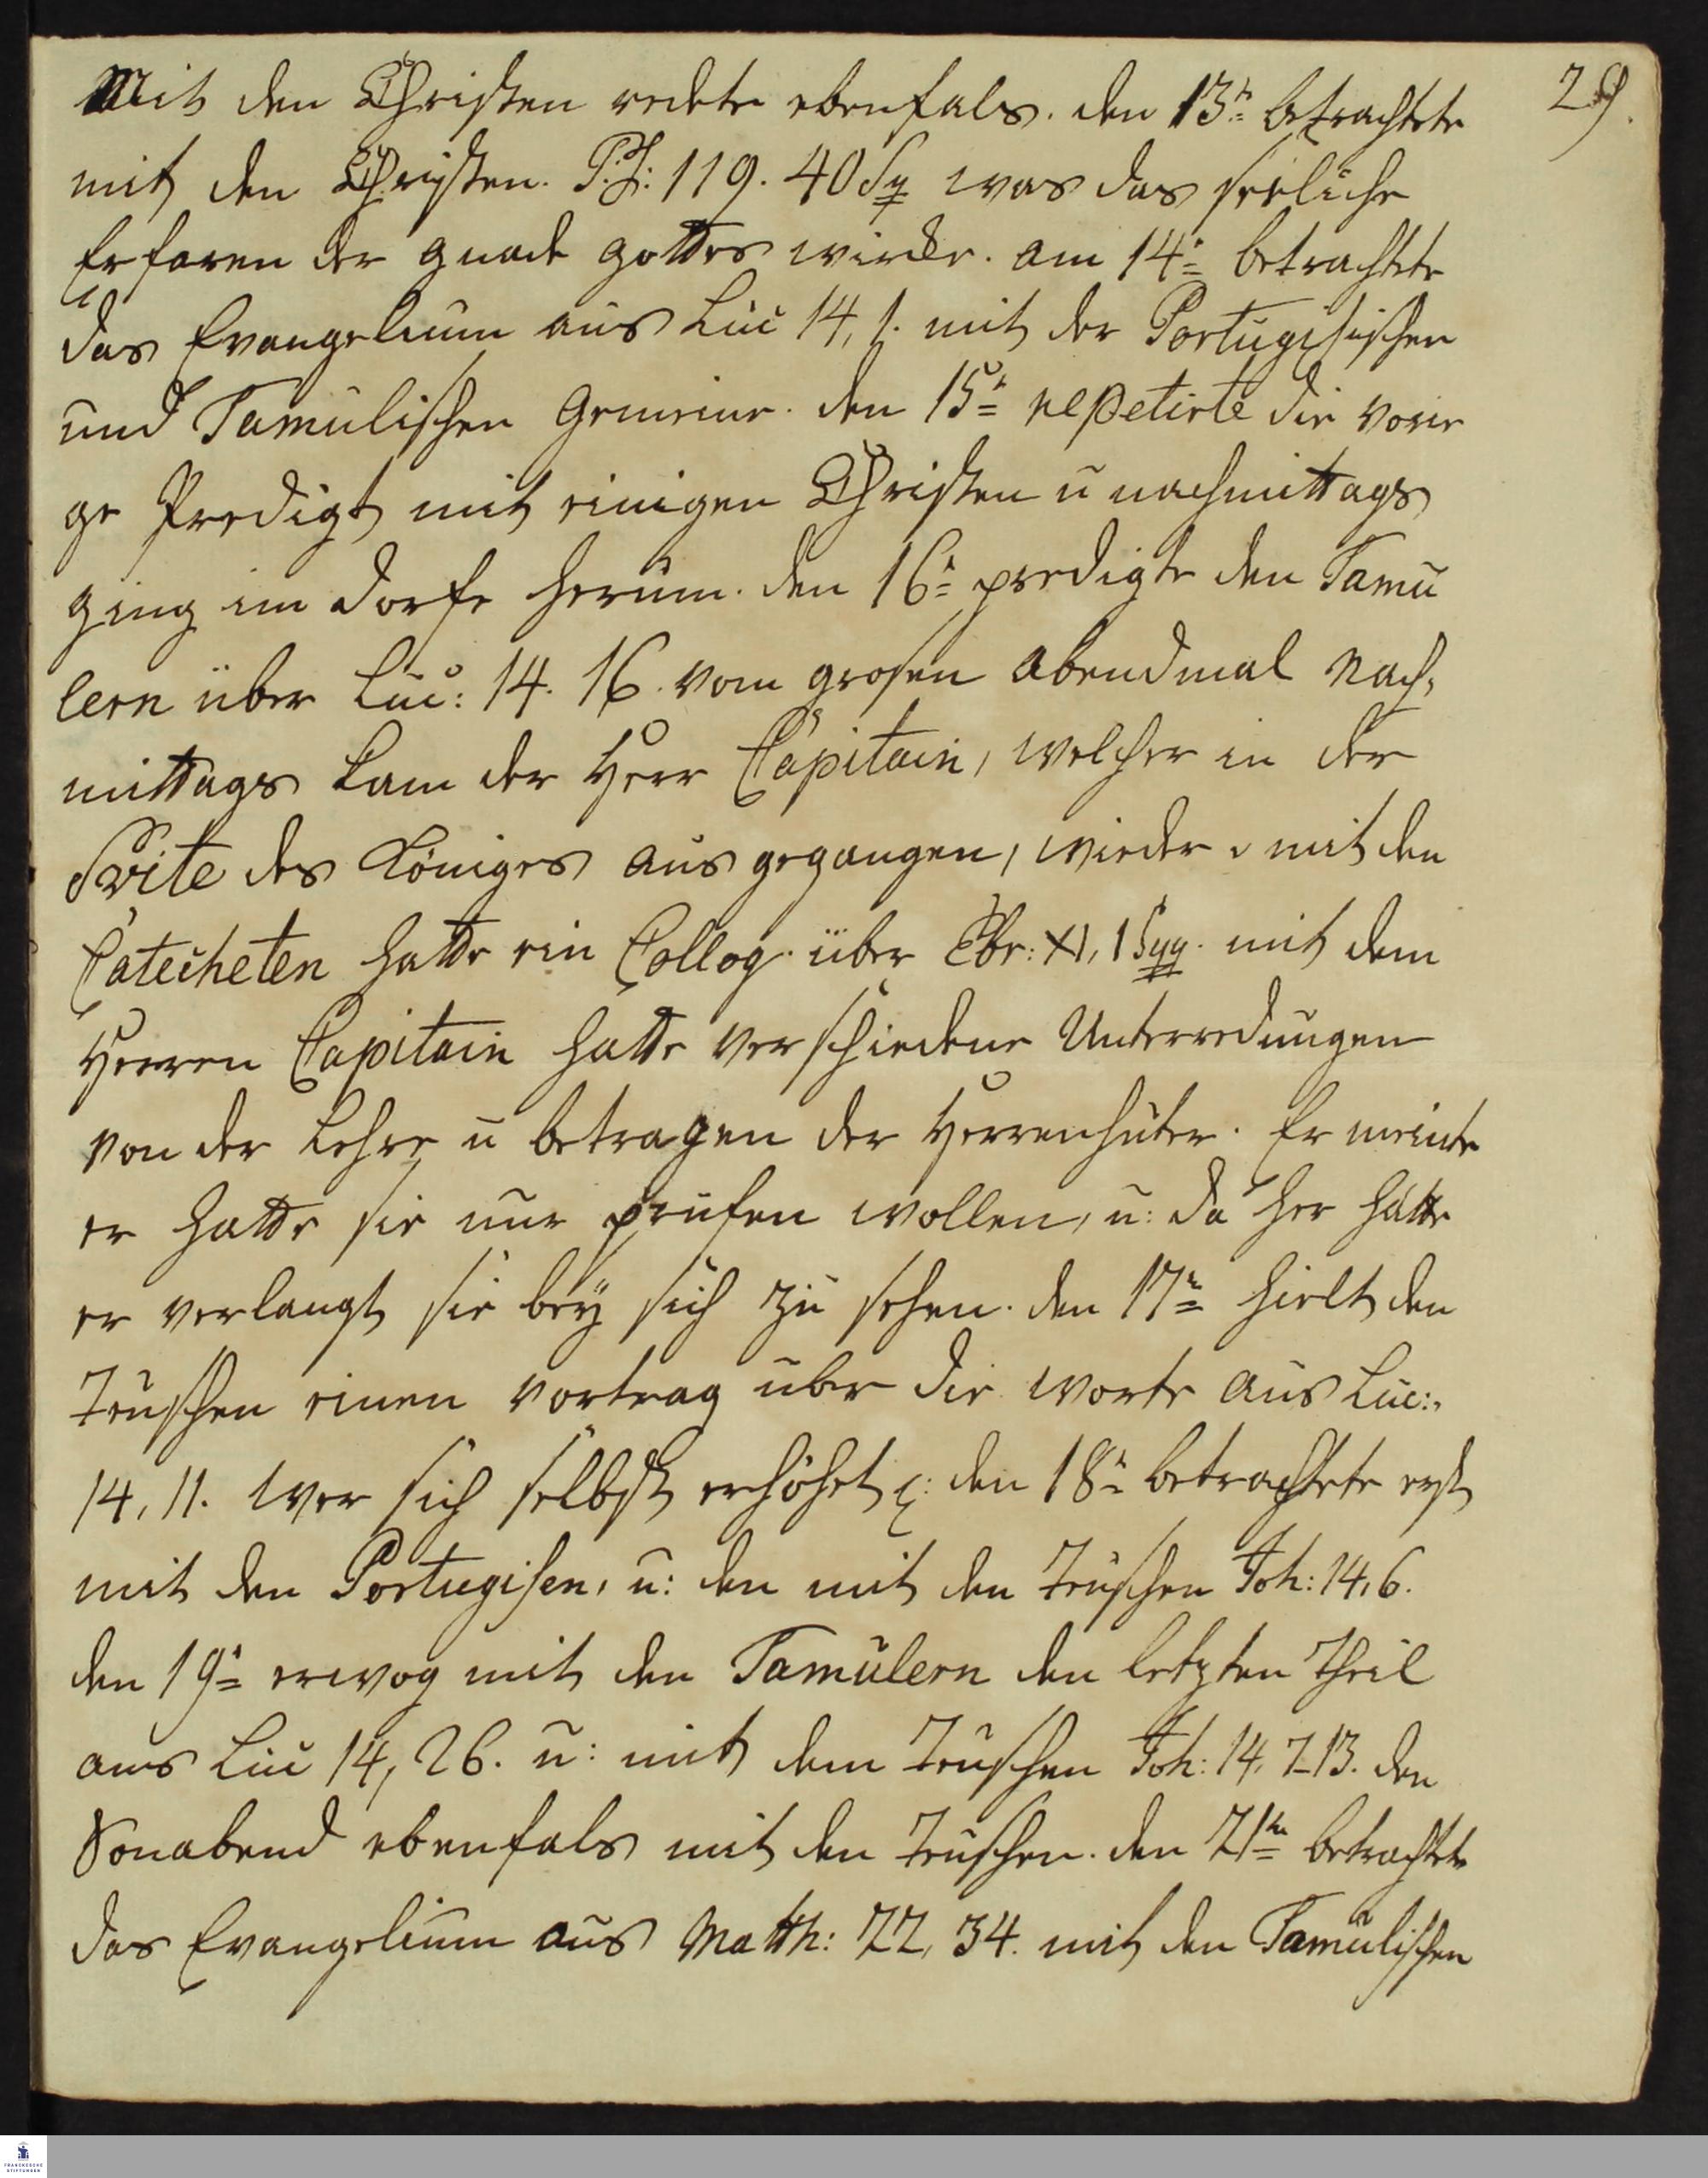 29.
Mit den Christen redete ebenfals. den 13t. betrachtete
mit den Christen. Ps: 119. 40 sq was das seeliche
Erfaren der gnade gottes wircke. am 14t betrachtete
das Evangelium aus Luc 14, 1. mit der Portugisischen
und Tamulischen Gemeine. den 15t repetirte die vorie
ge Predigt mit einigen Christen u nachmittags
ging im dorfe herum. den 16t predigte den Tamu
lern über Luc: 14. 16. vom grosen abendmal Nach,
mittags kam der Herr Capitain, welcher in der
Svite des Königes ausgegangen, wieder. mit den
Catecheten hatte ein Colloq. über Ebr: XI, 1 sqq. mit dem
Herren Capitain hatte verschiedene Unterredungen
von der Lehre u betragen der Herrenhuter. Er meinte
er hatte sie nur prüfen wollen, u: da her hätte
er verlangt sie bey sich zu sehen. den 17t hielt den
Teuschen einen vortrag über die worte aus Luc:
14, 11. wer sich selbst erhöhet p: den 18t betrachtete erst
mit den Portugisen, u: den mit den Teuschen Joh: 14, 6.
den 19t erwog mit den Tamulern den letzten theil
aus Luc 14, 26. u: mit dem Teuschen Joh: 14, 7-13. den
Sonabend ebenfals mit den Teuschen. den 21ten betrachtete
das Evangelium aus Matth: 22, 34. mit den Tamulischen
FRANCKESCHE
STIFTUNGEN